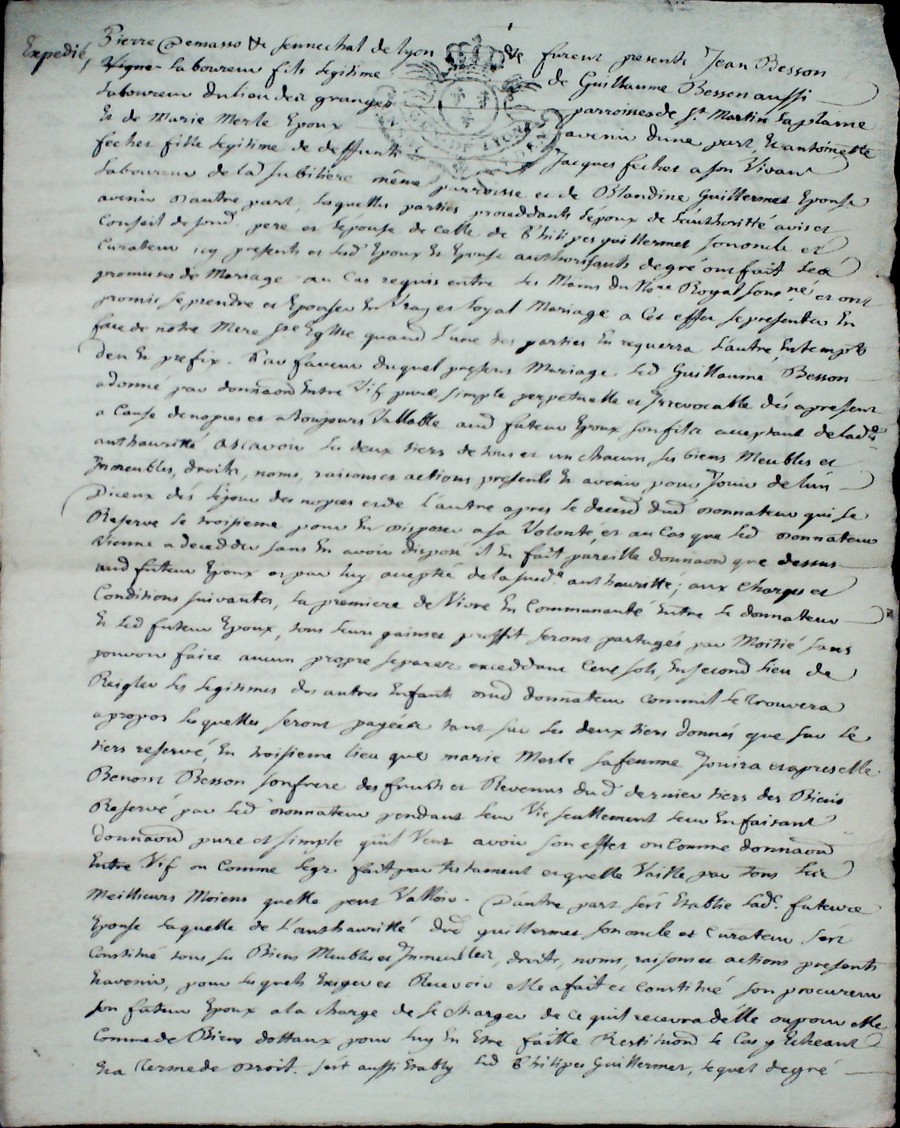 Expedié,
Pierre Demasso &c sennechal de lyon dis furent presents Jean Besson
Vigne-laboureur fils legitime de Guillaume Besson aussi
laboureur du lieu des granges parroisse de St Martin laplaine
Et de Marie Merle Epoux avenir dune part, Et antoinette
feches fille legitime de deffunt Jacques feches a son Vivant
laboureur de la Jubilière même parroisse et de Blandine Guillermet Epouse
avenir d'autre part, lesquelles parties proceddants lepoux de l'authoritté avis et
Conseil de sond. pere et lépouse de celle de Philipes guillermet son oncle et
Curateur icy presents et lesd. Epoux Et Epouse authorisants de gré ont fait les
promesses de Mariage au Cas requis entre les Mains du Nore Royal souss.né, et ont
promis se prendre et Epouser En Vray et loyal Mariage a Cet effet se presenter En
face de notre Mere Ste Eglise quand l'une des parties En requerra l'autre, Entemps
deu Et prefix. En faveur duquel present Mariage led. Guillaume Besson
a donné par donnaon Entre Vif pure, simple perpetuelle et Irrevocable dès apresent
a Cause de nopces et a toujours Vallable aud. futeur Epoux son fils acceptant de lad.
authauritté ascavoir les deux tiers de tous et un chacun ses biens Meubles et
Immeubles, droits, noms, raisons et actions presents Et avenir pour Jouir de l'un
Diceux dès le jour des nopces et de l'autre apres le deced dud. donnateur qui se
Reserve le troisieme pour En disposer a sa Volonté, et au Cas que led. donnateur
Vienne a decedder sans En avoir disposé il En fait pareille donnaon que dessus
aud. futeur Epoux et par luy acceptée de la sud.e authauritté; aux Charges et
Conditions suivantes, la premiere de Vivre En Communauté Entre le donnateur
Et led. futeur Epoux, tous leurs gains et proffit seront partagés par Moitié sans
pouvoir faire aucun propre separer exceddant Cent sols, En second lieu de
Reigler les legitimes des autres Enfants dud. donnateur comme il le trouvera
apropos lesquelles seront payées tant sur les deux tiers donnés que sur le
tiers reservé, En troisieme lieu que marie Merle sa femme Jouira et apres elle
Benoist Besson son frere des fruits et Revenus dud. dernier tiers des Biens
Reservé par led. donnateur pendant leur Vie seullement leur En faisant
donnaon pure et simple quil Veut avoir son effet ou Comme donnaon
Entre Vif ou Comme legs fait par testament et quelle Vaille par tous les
Meilleurs Moiens quelle peut Valloir. D'autre part sest Etablie lad. future
Epouse laquelle de l'authauritté dud. guillermet son oncle et Curateur sest
Constitué tous ses Biens Meubles et Immeubles, droits, noms, raisons et actions presents
Et avenir, pour lesquels Exiger et Recevoir elle a fait et Constitué son procureur
son futeur Epoux a la charge de se charger de Ce quil recevra delle ou pour elle
Comme de Biens dottaux pour luy En Etre faitte Restituon le Cas y Echeant
Et a terme de droit. sest aussi Etably led. Philipes Guillermet, lequel de gré